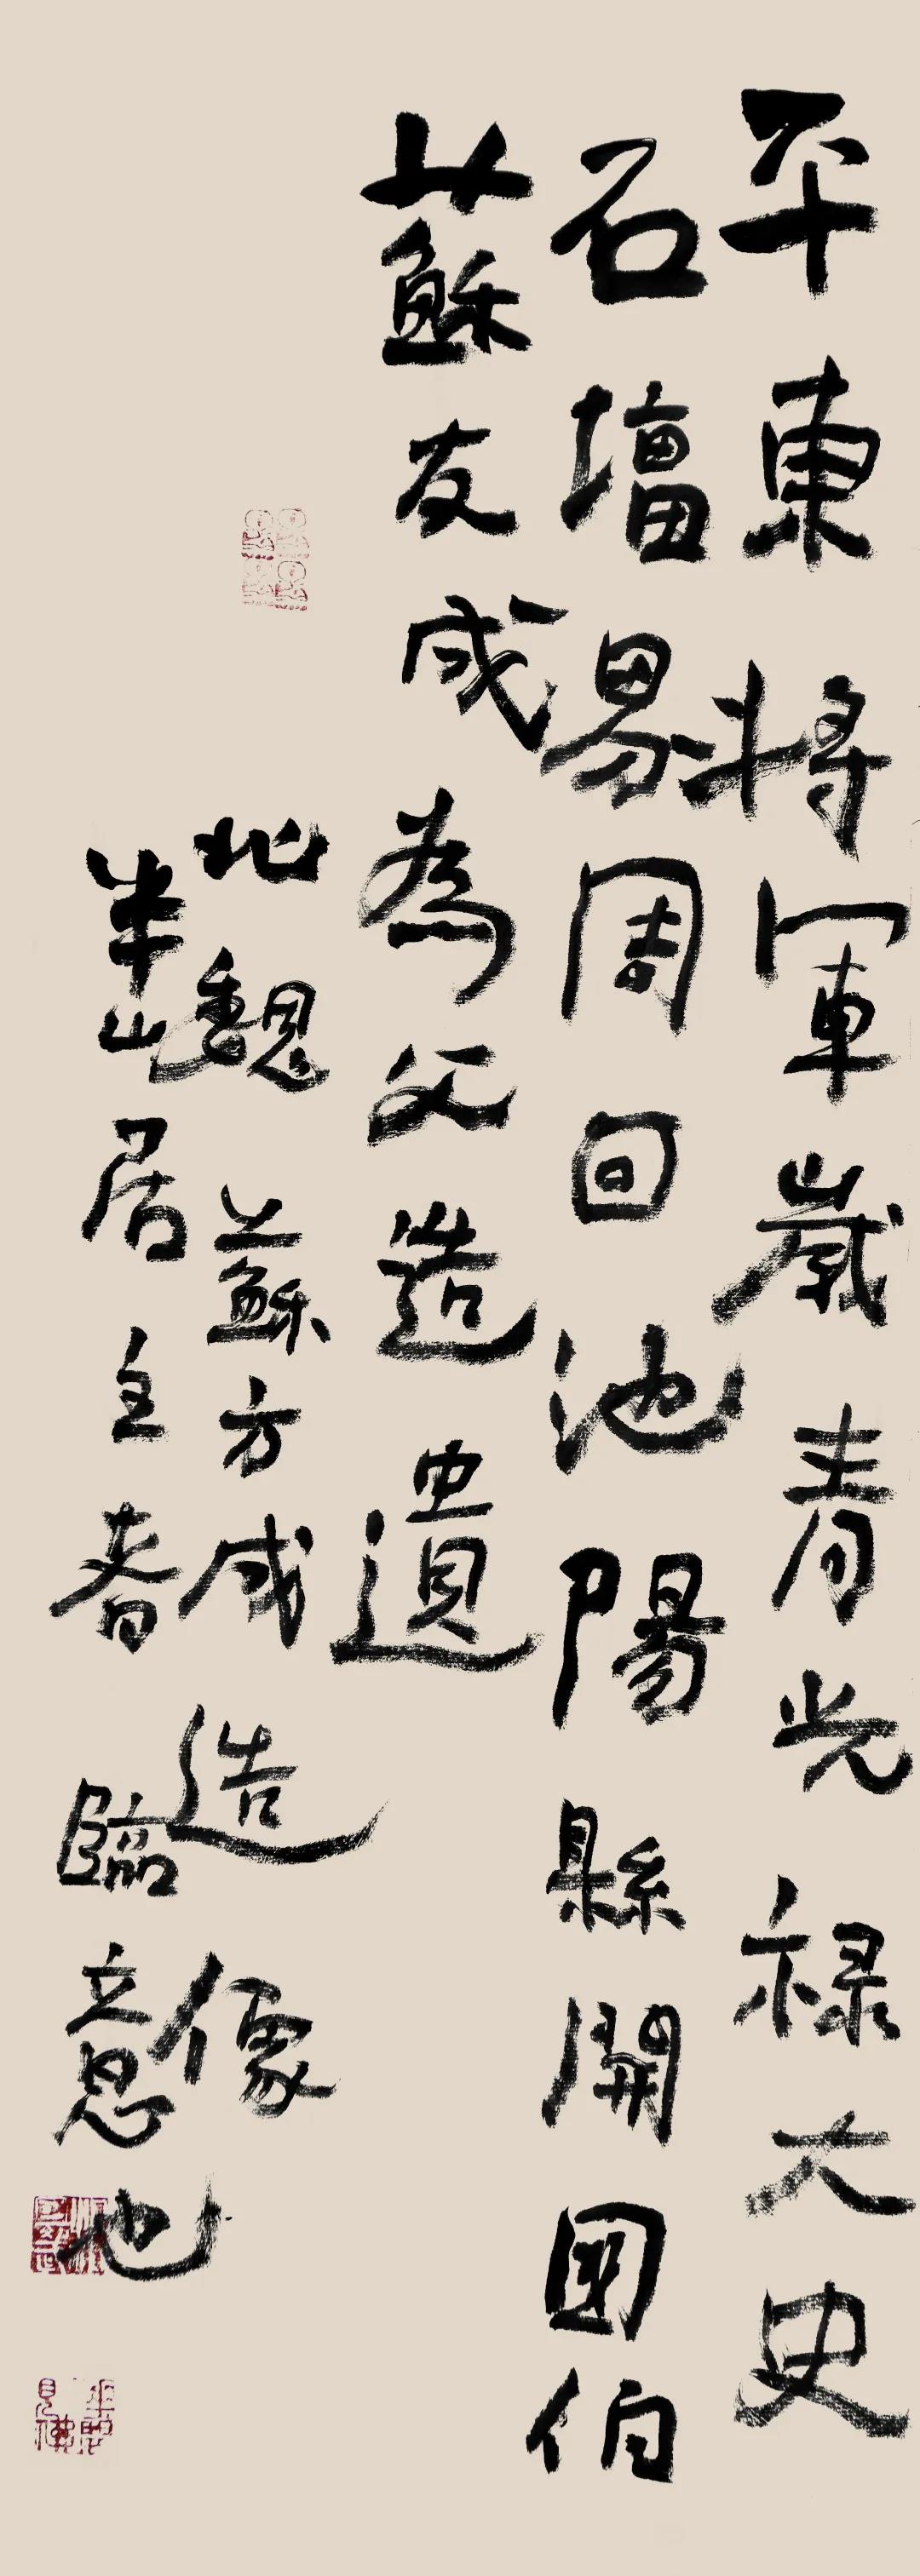 平東將軍歲青光祿大史
石壃昜周回池陽縣開國伯
蘇友成為父造遺
北魏蘇方成造像
半山居主春臨意也